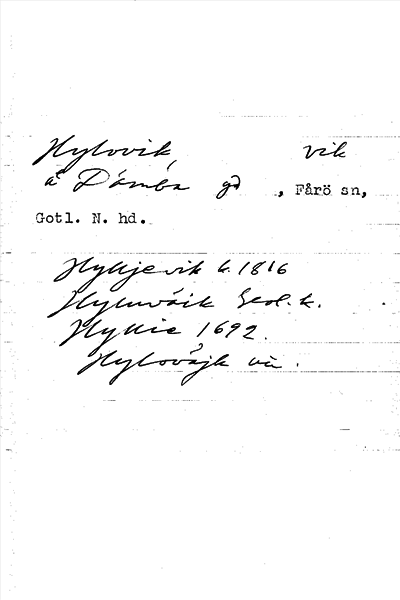 Hylovik, vik
å Dämba gd , Fårö sn,
Gotl. N. hd.
Hylljevik k. 1816
Geol. k.
Hyllie 1692.
Hyloväjk